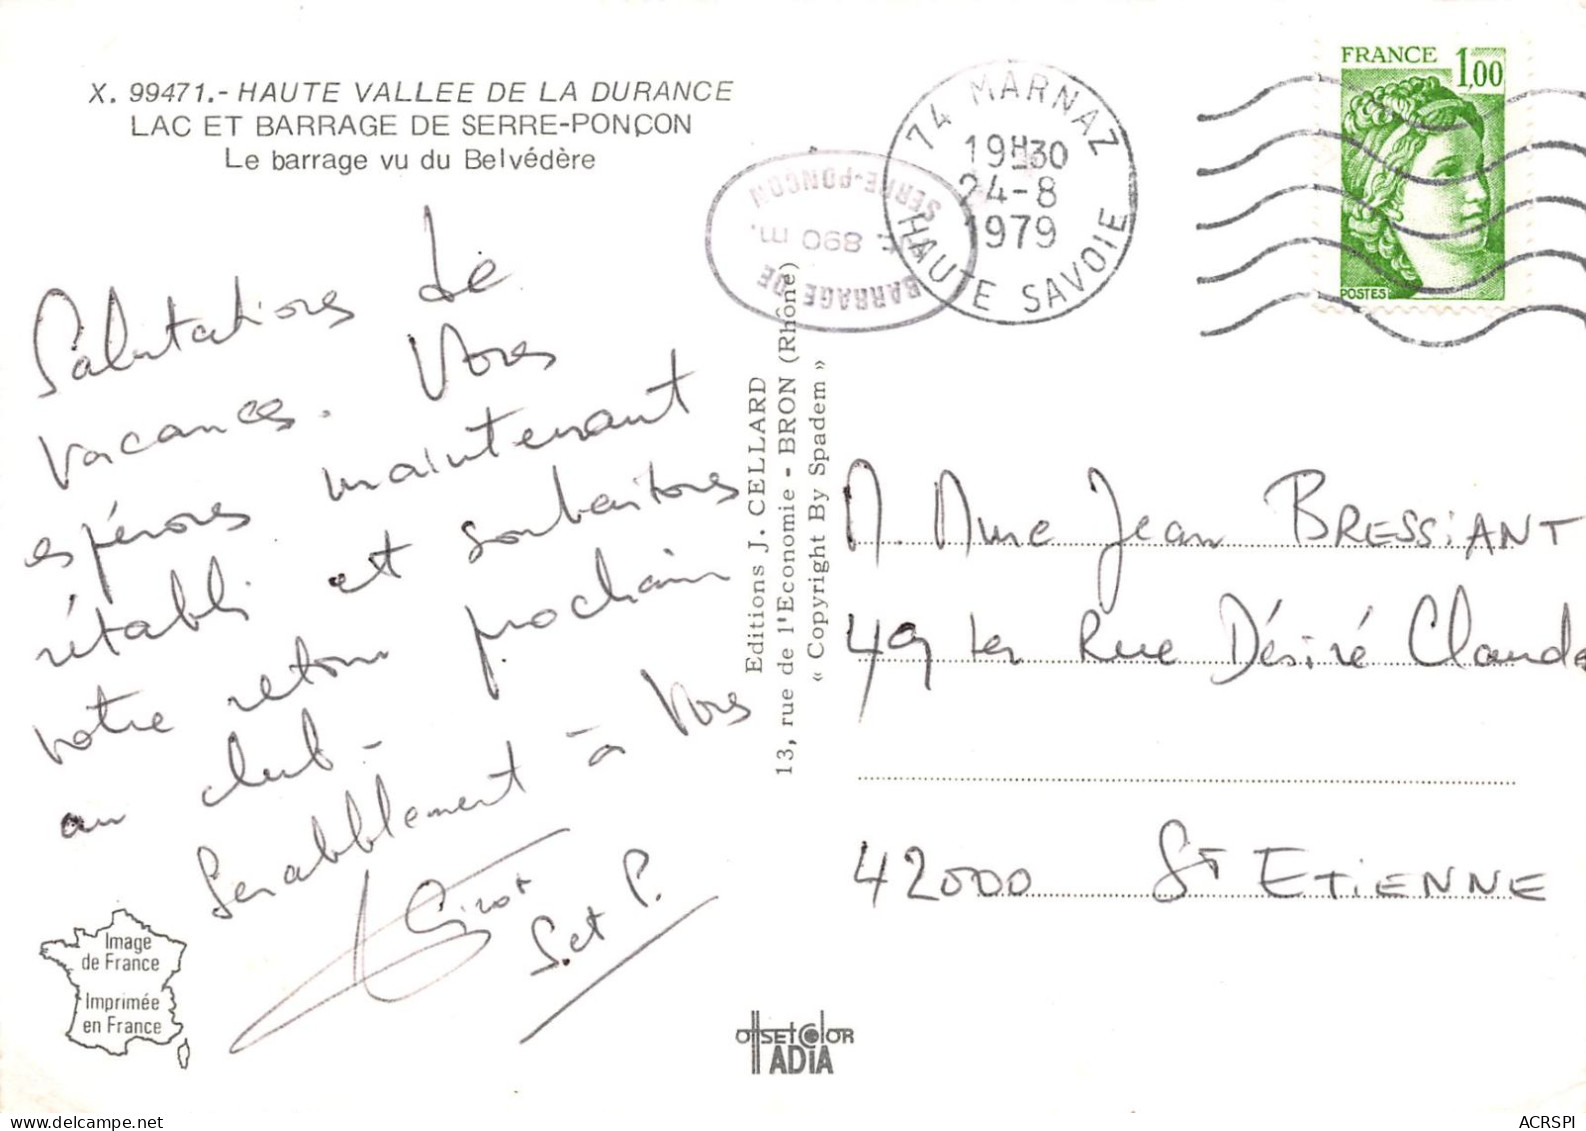 X. 99471.- HAUTE VALLEE DE LA DURANCE
LAC ET BARRAGE DE SERRE-PONÇON
Le barrage vu du Belvédère
Salutations de
vacances. Vous
espérons maintenant
rétabli et souhaitons
votre retour prochain
au club -
Semablement à Vous
Girot
S. et P.
Image
de France
Imprimée
en France
BARRAGE DE
SERRE-PONÇON
890 m.
74 MARNAZ
19H30
24-8
1979
HAUTE SAVOIE
FRANCE 1,00
POSTES
Editions J. CELLARD
13, rue de l'Economie - BRON (Rhône)
« Copyright By Spadem »
M. Mme Jean BRESSiANT
49 ter Rue Désiré Claude
42000 St ETiENNE
OffSET COlOR
ADIA
www.delcampe.net
ACRSPI